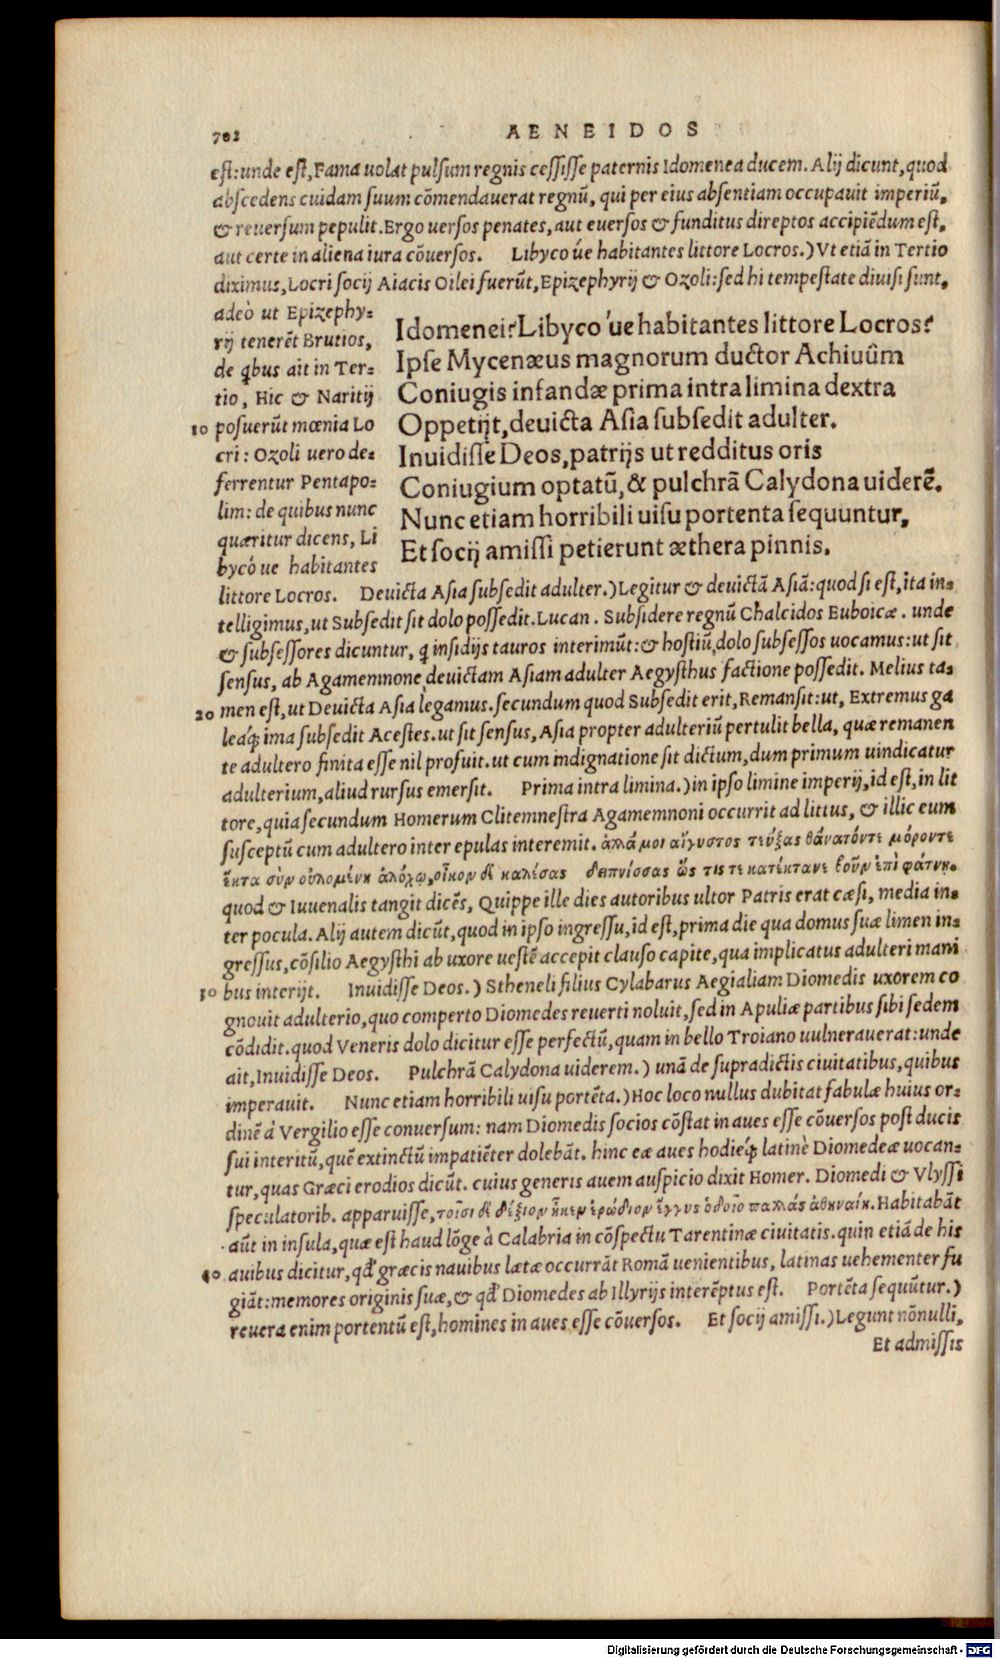 702
AENEIDOS
est: unde est, Fama uolat pulsum regnis cessisse paternis Idomenea ducem. Alij dicunt, quod
abscedens cuidam suum cōmendauerat regnũ, qui per eius absentiam occupauit imperiũ,
& reuersum pepulit. Ergo uersos penates, aut euersos & funditus direptos accipiēdum est,
aut certe in aliena iura cōuersos. Libyco úe habitantes littore Locros.) Vt etiā in Tertio
diximus, Locri socij Aiacis Oilei fuerũt, Epizephyrij & Ozoli: sed hi tempestate diuisi sunt,
adeò ut Epizephy-
rij tenerēt Brutios,
de qbus ait in Ter-
tio, Hic & Naritij
10 posuerũt mœnia Lo
cri: Ozoli uero de-
ferrentur Pentapo-
lim: de quibus nunc
quæritur dicens, Li
bycó ue habitantes
Idomenei? Libyco 'ue habitantes littore Locros?
Ipse Mycenæus magnorum ductor Achiuûm
Coniugis infandæ prima intra limina dextra
Oppetijt, deuicta Asia subsedit adulter.
Inuidisse Deos, patrijs ut redditus oris
Coniugium optatũ, & pulchrã Calydona uiderẽ.
Nunc etiam horribili uisu portenta sequuntur,
Et socij amissi petierunt æthera pinnis.
littore Locros. Deuicta Asia subsedit adulter.) Legitur & deuictã Asiã: quod si est, ita in-
telligimus, ut Subsedit sit dolo possedit. Lucan. Subsidere regnũ Chalcidos Euboicæ. unde
& subsessores dicuntur, q insidijs tauros interimũt: & hostiũ dolo subsessos uocamus: ut sit
sensus, ab Agamemnone deuictam Asiam adulter Aegysthus factione possedit. Melius ta-
20 men est, ut Deuicta Asia legamus. secundum quod Subsedit erit, Remansit: ut, Extremus ga
leaq́; ima subsedit Acestes. ut sit sensus, Asia propter adulteriũ pertulit bella, quæ remanen
te adultero finita esse nil profuit. ut cum indignatione sit dictum, dum primum uindicatur
adulterium, aliud rursus emersit. Prima intra limina.) in ipso limine imperij, id est, in lit
tore, quia secundum Homerum Clitemnestra Agamemnoni occurrit ad littus, & illic eum
susceptũ cum adultero inter epulas interemit. ἀλλά μοι αἴγυστος τεύξας θάνατόντε μόροντε
ἔκτα σὺν οὐλομένη ἀλόχω, οἶκον δὲ καλέσας δειπνίσσας ὥς τις τε κατέκτανε βοῦν ἐπὶ φάτνη.
quod & Iuuenalis tangit dicēs, Quippe ille dies autoribus ultor Patris erat cæsi, media in-
ter pocula. Alij autem dicũt, quod in ipso ingressu, id est, prima die qua domus suæ limen in-
gressus, cōsilio Aegysthi ab uxore uestē accepit clauso capite, qua implicatus adulteri mani
30 bus interijt. Inuidisse Deos.) Stheneli filius Cylabarus Aegialiam Diomedis uxorem co
gnouit adulterio, quo comperto Diomedes reuerti noluit, sed in Apuliæ partibus sibi sedem
cōdidit. quod Veneris dolo dicitur esse perfectũ, quam in bello Troiano uulnerauerat: unde
ait, Inuidisse Deos. Pulchrã Calydona uiderem.) unã de supradictis ciuitatibus, quibus
imperauit. Nunc etiam horribili uisu portēta.) Hoc loco nullus dubitat fabulæ huius or-
dinē à Vergilio esse conuersum: nam Diomedis socios cōstat in aues esse cōuersos post ducis
sui interitũ, quē extinctũ impatiēter dolebãt. hinc eæ aues hodieq́; latinè Diomedeæ uocan-
tur, quas Græci erodios dicũt. cuius generis auem auspicio dixit Homer. Diomedi & Vlyssi
speculatorib. apparuisse, τοῖσι δὲ δέξιον ἧκεν ἐρώδιον ἔγγυς ὁδοῖο παλλάς ἀθηναίη. Habitabãt
aũt in insula, quæ est haud lōge à Calabria in cōspectu Tarentinæ ciuitatis. quin etiã de his
40 auibus dicitur, qđ græcis nauibus lætæ occurrãt Romã uenientibus, latinas uehementer fu
giãt: memores originis suæ, & qđ Diomedes ab Illyrijs interēptus est. Portēta sequũtur.)
reuera enim portentũ est, homines in aues esse cōuersos. Et socij amissi.) Legunt nōnulli,
Et admissis
Digitalisierung gefördert durch die Deutsche Forschungsgemeinschaft - DFG